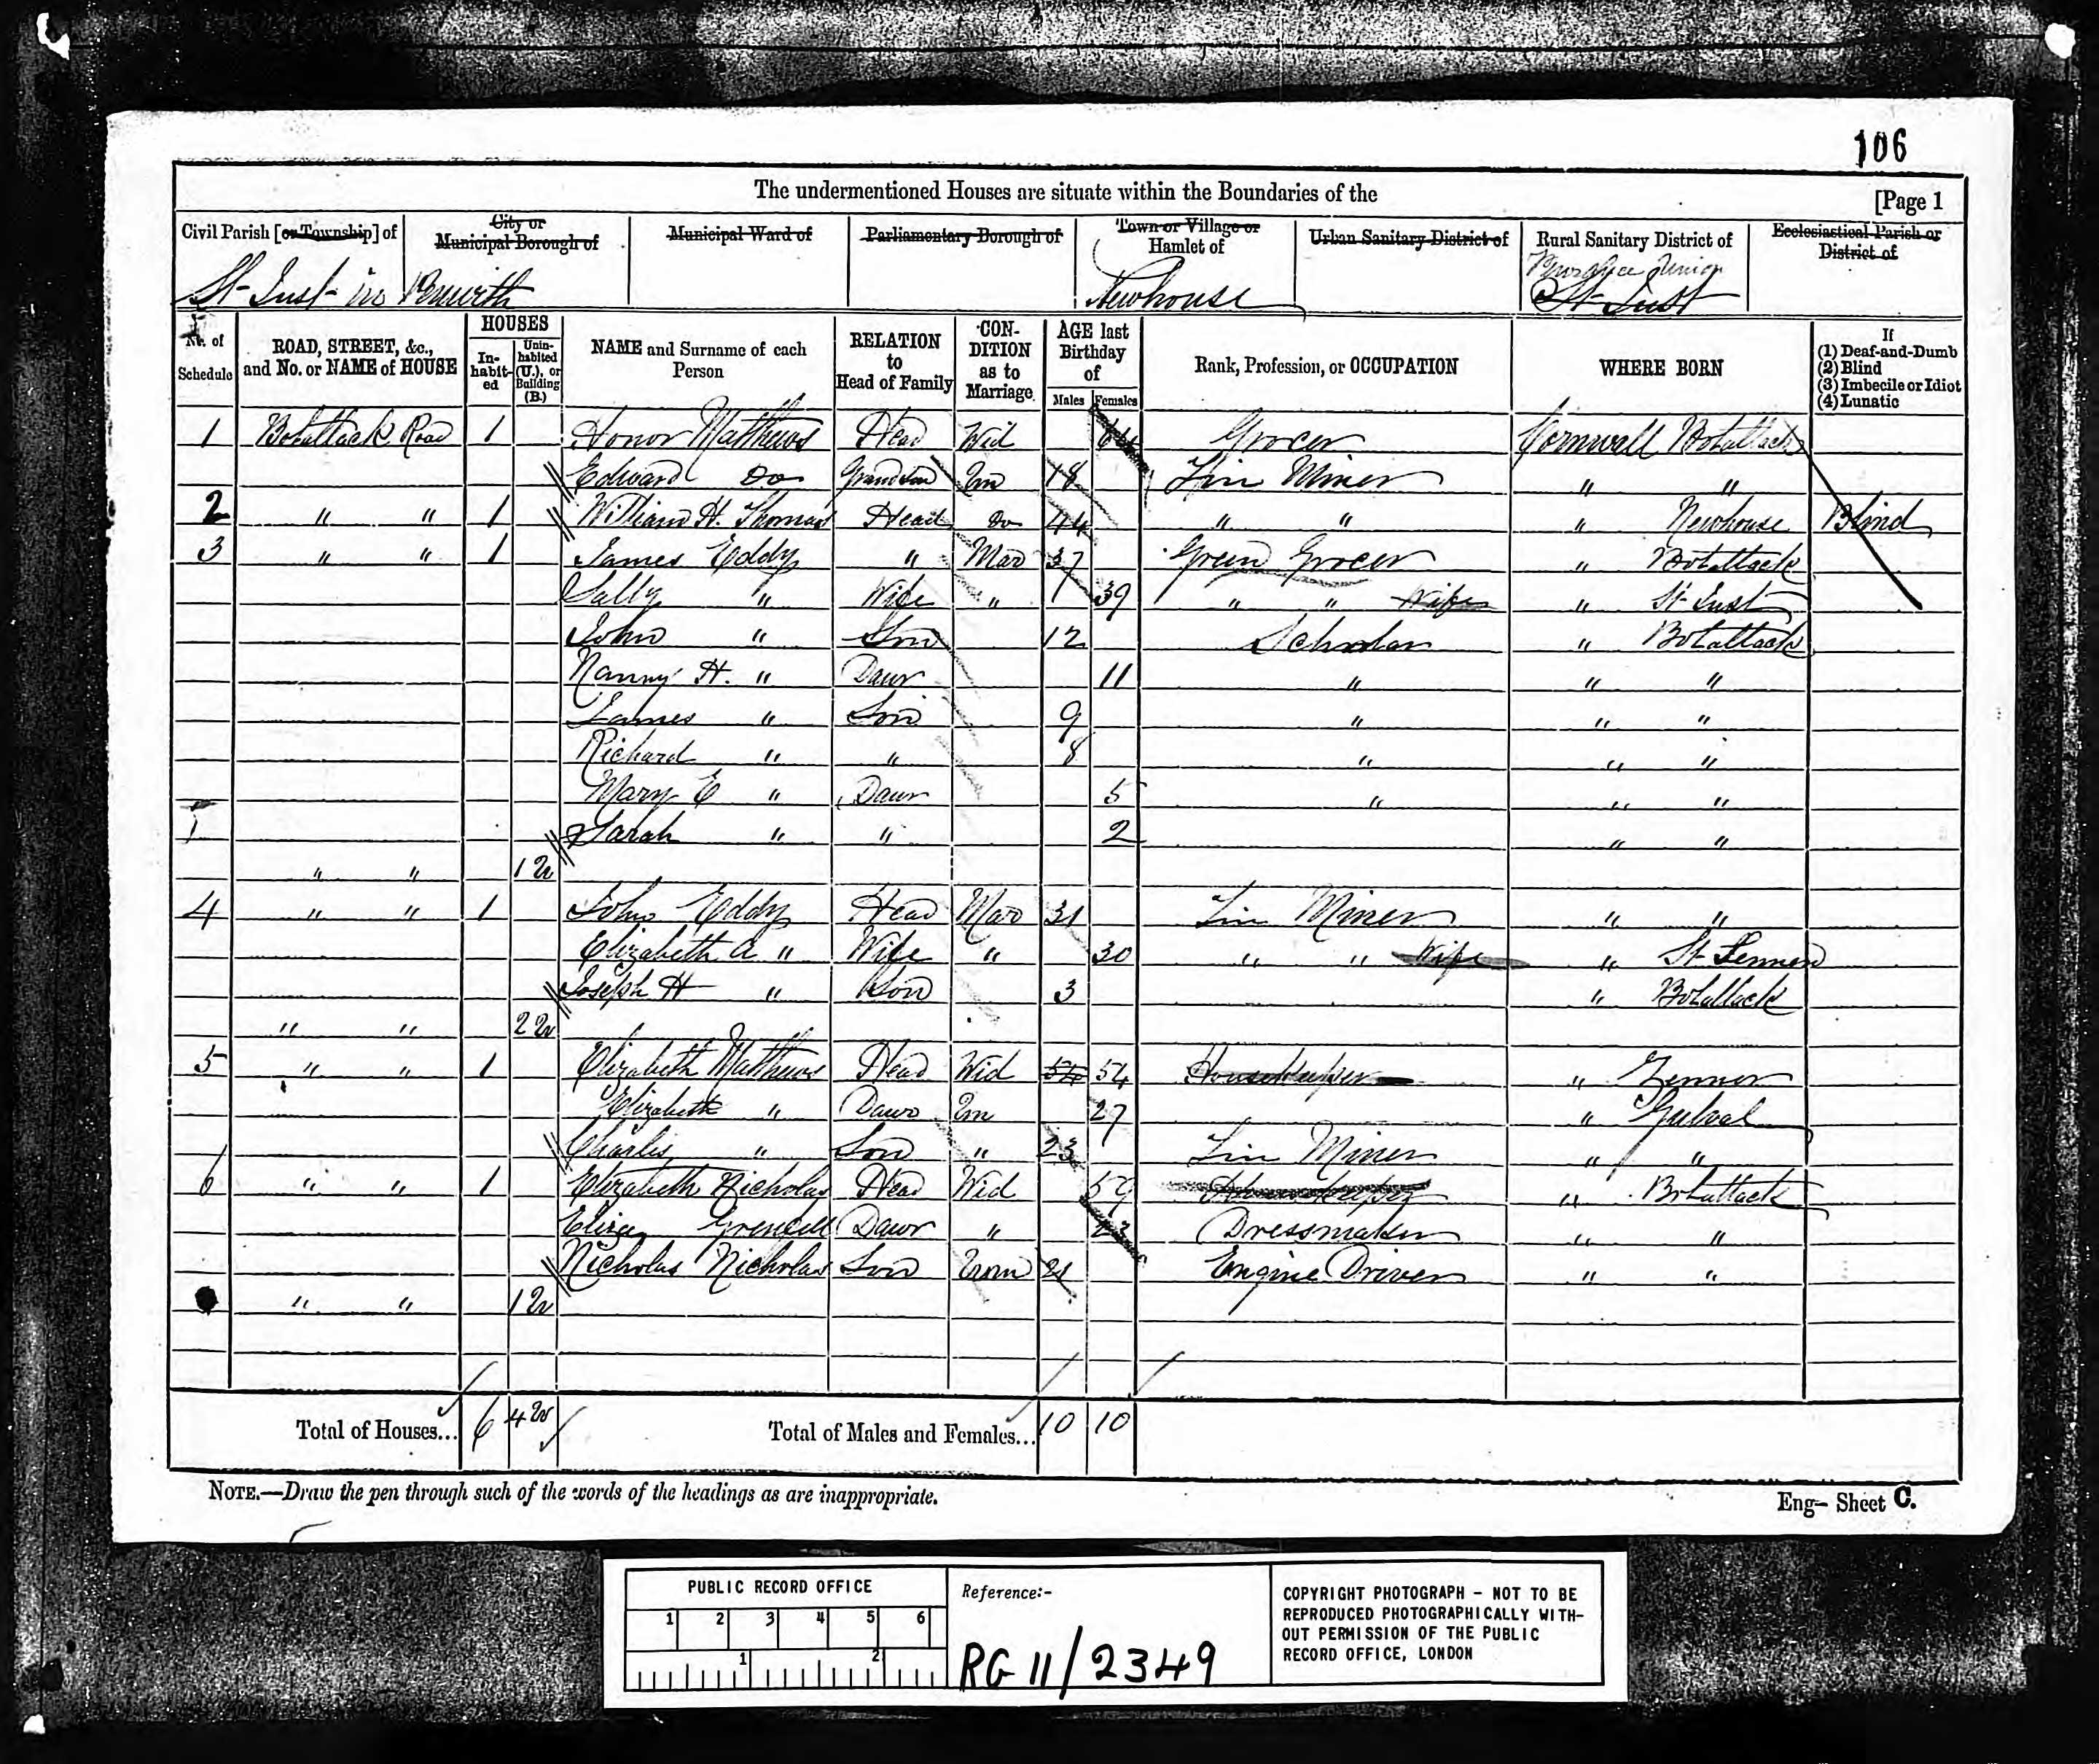 106
The undermentioned Houses are situate within the Boundaries of the [Page 1
Civil Parish [or Township] of City or Municipal Borough of Municipal Ward of Parliamentary Borough of Town or Village or Hamlet of Urban Sanitary District of Rural Sanitary District of Ecclesiastical Parish or District of
St Just in Penwith Newhouse Union St Just
No. of Schedule ROAD, STREET, &c., and No. or NAME of HOUSE HOUSES Inhabited Uninhabited (U.), or Building (B.) NAME and Surname of each Person RELATION to Head of Family CONDITION as to Marriage AGE last Birthday of Males Females Rank, Profession, or OCCUPATION WHERE BORN If (1) Deaf-and-Dumb (2) Blind (3) Imbecile or Idiot (4) Lunatic
1 Botallack Road 1 Honor Matthews Head Wid Grocer Cornwall Botallack
Edward Do Grandson Um 18 Tin Miner " "
2 " " 1 William H. Thomas Head Do 44 " " " Newhouse Blind
3 " " 1 James Eddy " Mar 37 Green Grocer " Botallack
Sally " Wife " 39 " " Wife " St Just
John " Son 12 Scholar " Botallack
Nanny H. " Daur 11 " " "
James " Son 9 " " "
Richard " " 8 " " "
Mary E " Daur 5 " " "
Sarah " " 2 " "
" " 1 U
4 " " 1 John Eddy Head Mar 31 Tin Miner " "
Elizabeth A " Wife " 30 " " Wife " St Sennen
Joseph H " Son 3 " Botallack
" " 2 U
5 " " 1 Elizabeth Matthews Head Wid 54 54 Housekeeper " Zennor
Elizabeth " Daur Um 27 " Gulval
Charles " Son " 23 Tin Miner " "
6 " " 1 Elizabeth Nicholas Head Wid 59 Housekeeper " Botallack
Eliza Grenfell Daur " 23 Dressmaker " "
Nicholas Nicholas Son Unm 21 Engine Driver " "
" " 1 U
Total of Houses... 6 4 U Total of Males and Females... 10 10
NOTE.—Draw the pen through such of the words of the headings as are inappropriate.
Eng— Sheet C.
PUBLIC RECORD OFFICE
1 2 3 4 5 6
1 2
Reference:-
RG 11/2349
COPYRIGHT PHOTOGRAPH – NOT TO BE
REPRODUCED PHOTOGRAPHICALLY WITH-
OUT PERMISSION OF THE PUBLIC
RECORD OFFICE, LONDON